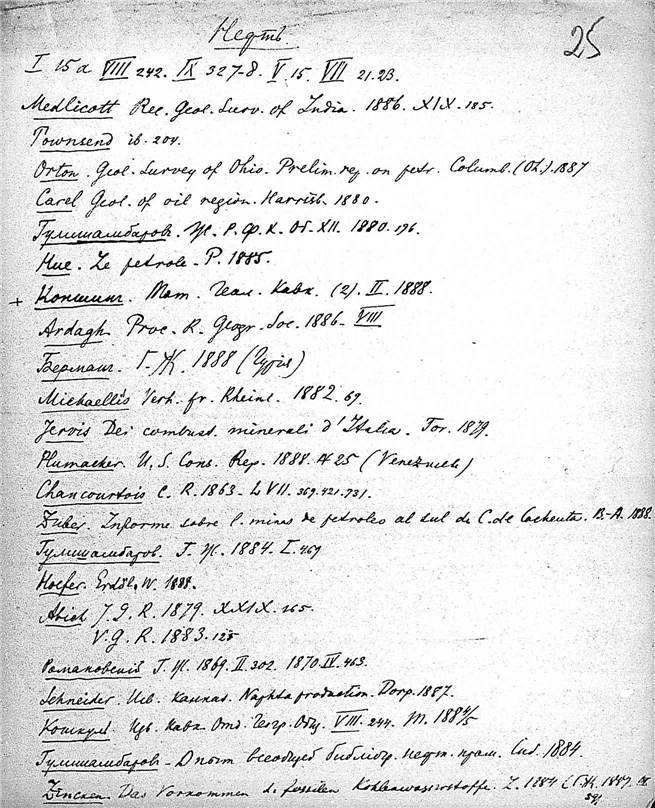 Нефть.
25
I 15a VIII 242. IX 327-8. V 15. VII 21.23.
Medlicott Rec. Geol. Surv. of India. 1886. XIX. 185.
Townsend ib. 204.
Orton. Geol. Survey of Ohio. Prelim. rep. on petr. Columb. (Oh.) 1887
Carel Geol. of oil region. Harrisb. 1880.
Гулишамбаров. Ж. Р. Ф. Х. Об. XII. 1880. 196.
Hue. Le petrole. P. 1885.
+ Коншин. Мат. Геол. Кавк. (2). II. 1888.
Ardagh Proc. R. Geogr. Soc. 1886. VIII
Бергман. Г. Ж. 1888
Michaellis Verh. fr. Rheinl. 1882. 69.
Jervis Dei combust. minerali d'Italia. Tor. 1879.
Plumacher. U. S. Cons. Rep. 1888. (Venezuela)
Chancourtois C. R. 1863. LVII. 369.421.731.
Zuber. Informe sobre l. minas de petroleo al sul de C. de Cacheuta. B.-A. 1888.
Гулишамбаров. Г. Ж. 1884. I. 469
Hoefer. Erdöl. W. 1888.
Abich J. g. R. 1879. XXIX. 165.
V. g. R. 1883. 125
Романовский Г. Ж. 1869. II. 302. 1870. IV. 463.
Schneider. Naphtaproduction. Dorp. 1887.
Кошкуль. Изв. Кавк. Отд. Геогр. Общ. VIII. 244. Т. 1884/5
Гулишамбаров - Опыт всеобщей библиогр. нефт. пром. 1884.
Zincken Das Vorkommen d. fossilen Kohlenwasserstoffe. L. 1884 (Г. Ж. 1887.